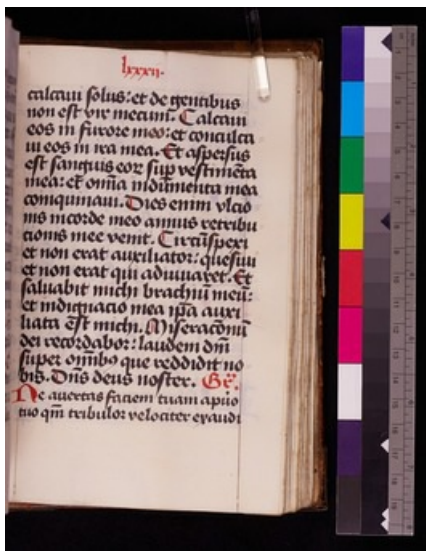 lxxxii.
calcaui solus: et de gentibus
non est vir mecum. Calcaui
eos in furore meo: et conculca
ui eos in ira mea. Et aspersus
est sanguis eoꝝ sup vestimēta
mea: et om̄ia indumenta mea
coinquinaui. Dies enim vlcio
nis in corde meo annus retribu
cionis mee venit. Circūspexi
et non erat auxiliator: quesiui
et non erat qui adiuuaret. Et
saluabit michi brachiū meū:
et indignacio mea ip̄a auxi
liata est michi. Miseracionū
dn̄i recordabor: laudem dn̄i
super om̄ibꝰ que reddidit no
bis. Dn̄s deus noster. Gr̄.
Ne auertas faciem tuam a puero
tuo qm̄ tribulor velociter exaudi